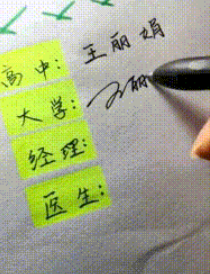 高中：王丽娟
大学：王丽
经理：
医生：